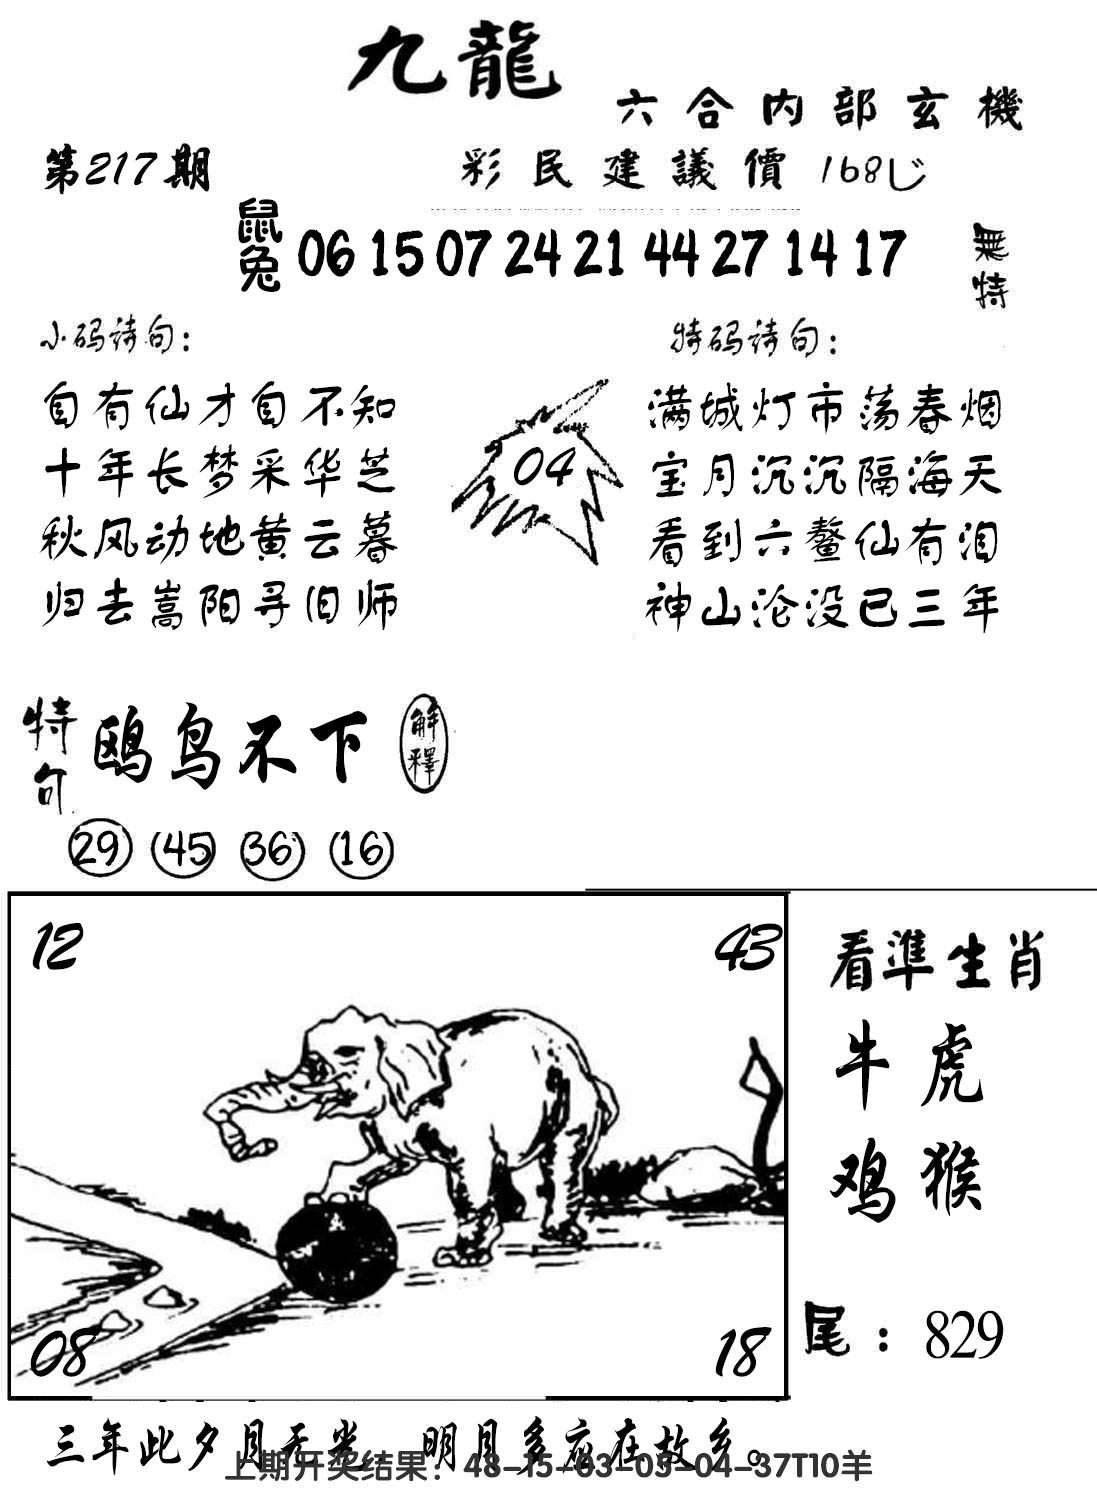 九龍
六合内部玄機
第217期
彩民建議價 168
鼠兔 06 15 07 24 21 44 27 14 17
無特
小码诗句：
自有仙才自不知
十年长梦采华芝
秋风动地黄云暮
归去嵩阳寻旧师
04
特码诗句：
满城灯市荡春烟
宝月沉沉隔海天
看到六鳌仙有泪
神山沦没已三年
特句 鸥鸟不下 解釋
29 45 36 16
12 43
08 18
看準生肖
牛虎
鸡猴
尾：829
三年此夕月无光 明月多应在故乡。
上期开奖结果：48-15-03-05-04-37T10羊